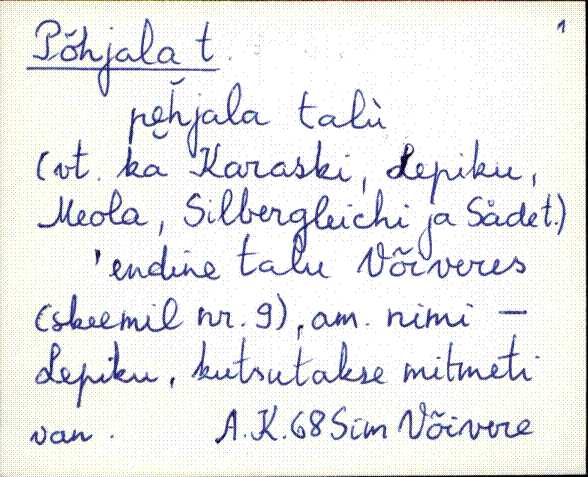 Põhjala t.
1
pe̮h̆jala talù
(vt. ka Karaski, Lepiku,
Meola, Silbergleichi ja Sädet.)
'endine talu Võiveres
(skeemil nr. 9), am. nimi –
Lepiku, kutsutakse mitmeti
van. A.K.68 Sim Võivere